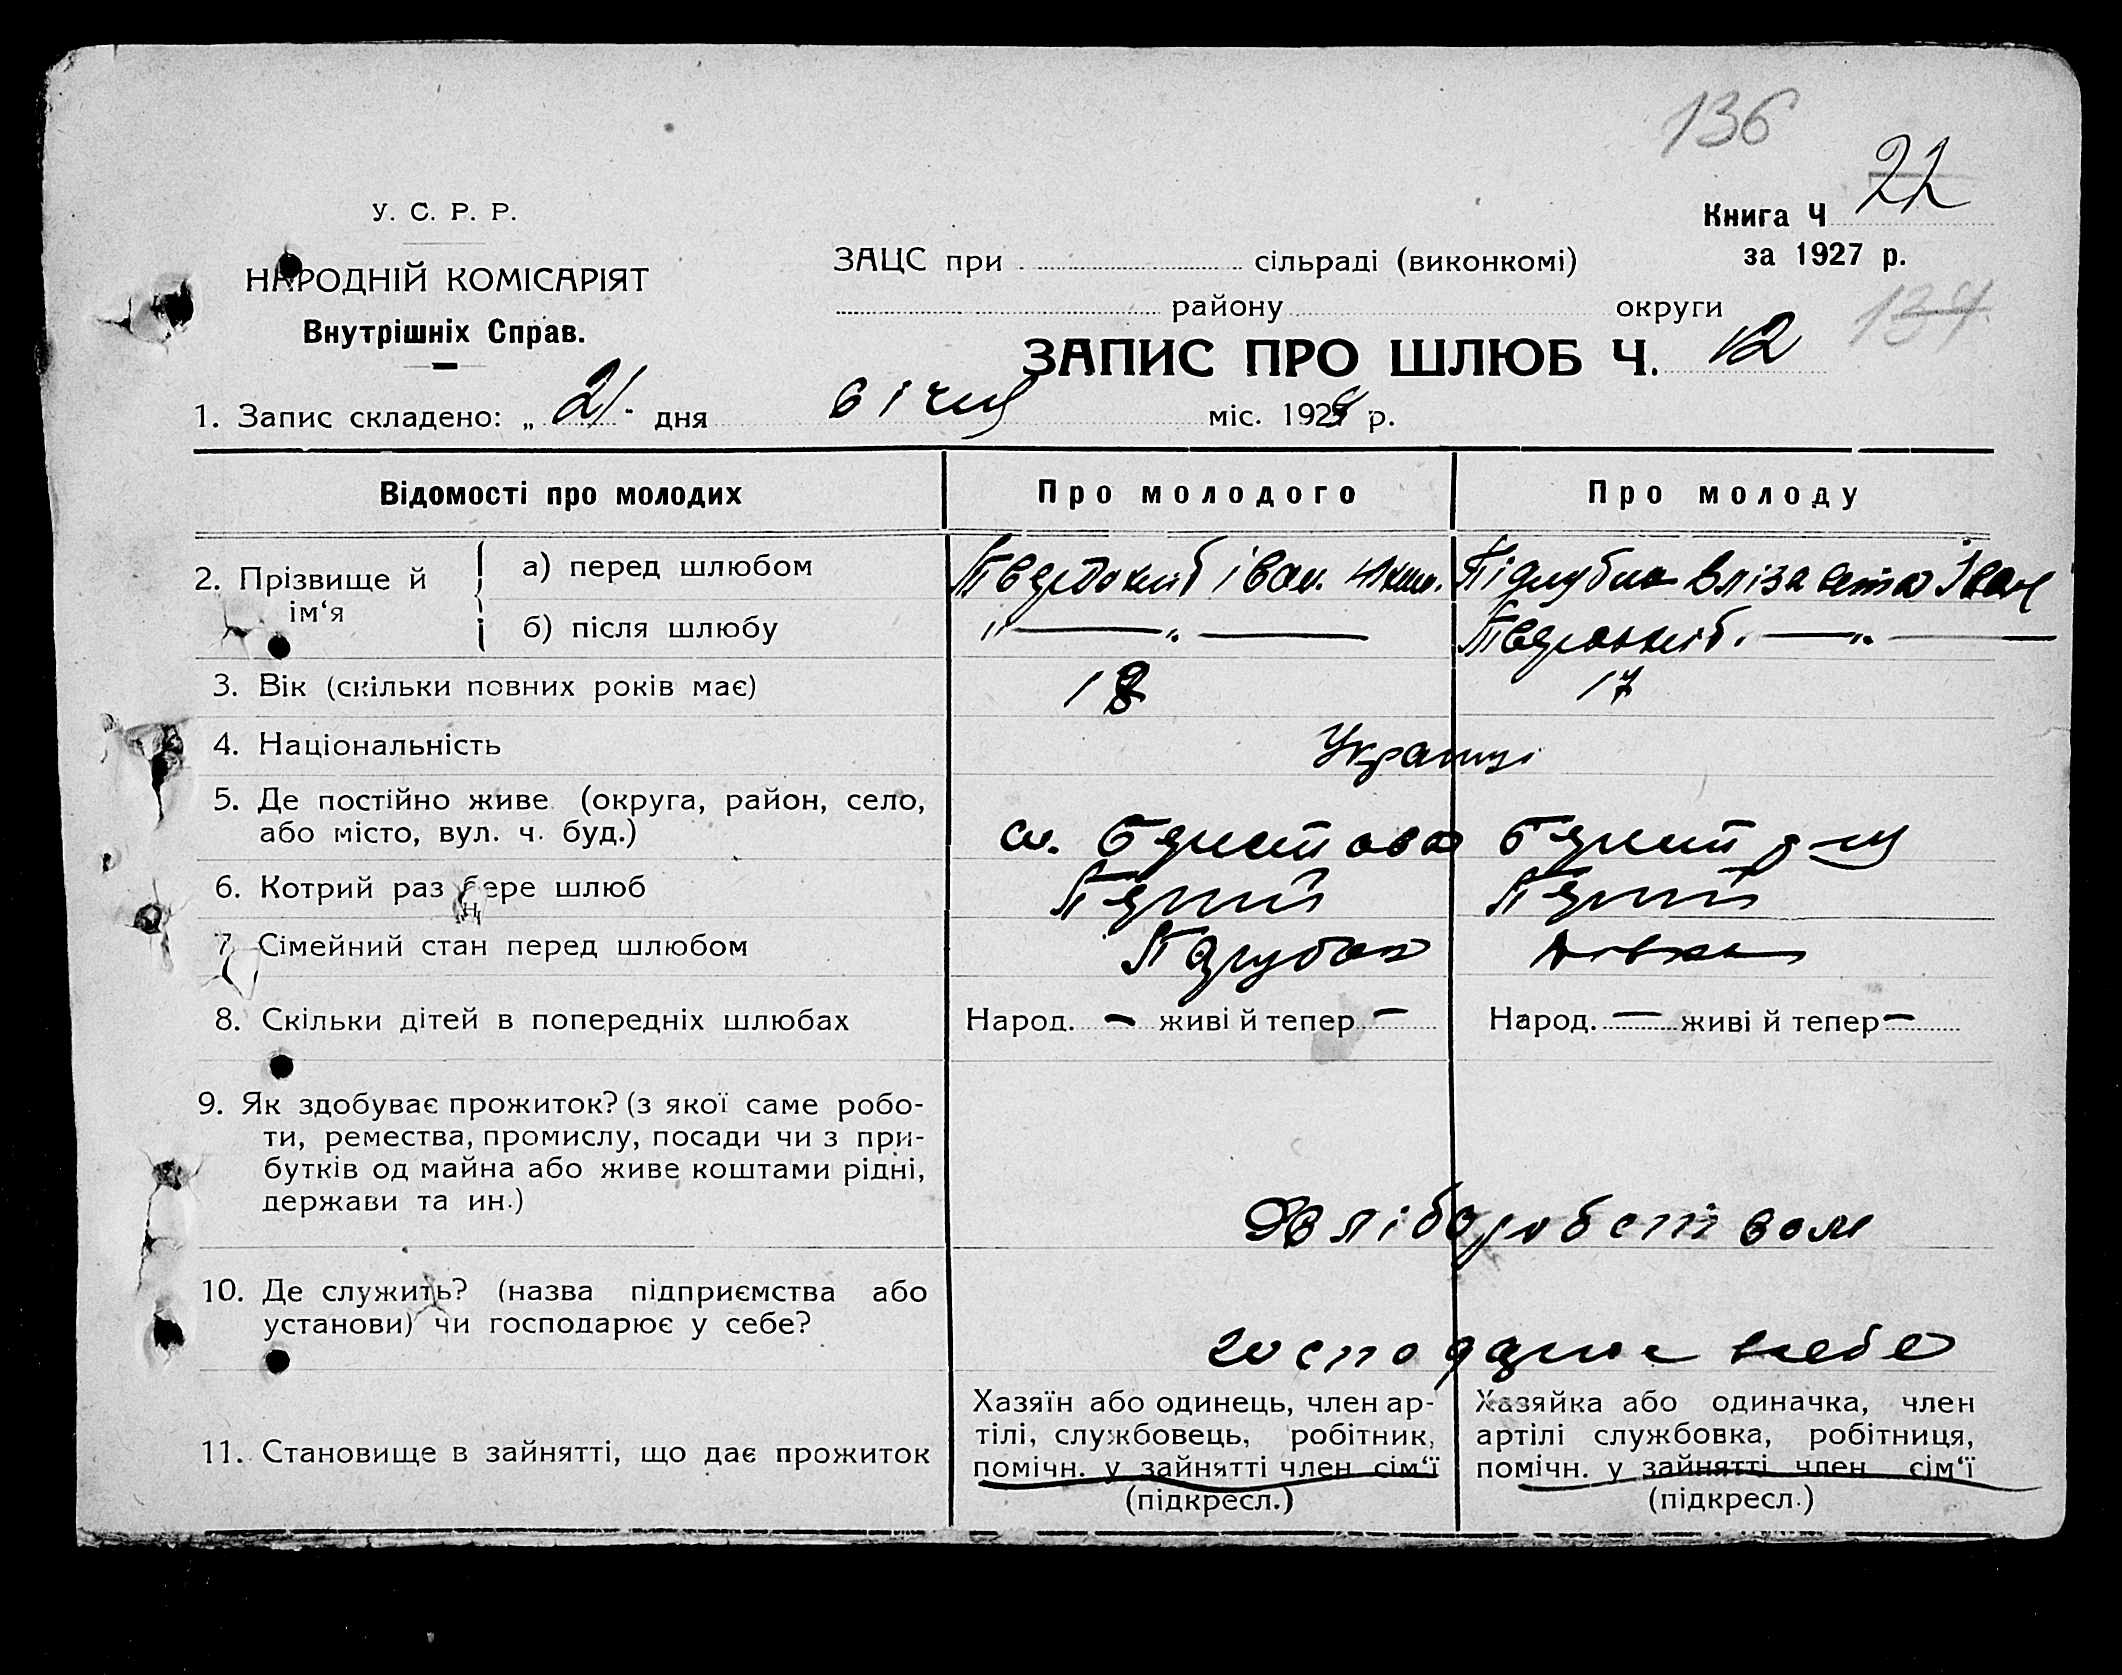 136
22
У. С. Р. Р.
Книга Ч
НАРОДНІЙ КОМІСАРІЯТ
ЗАЦС при сільраді (виконкомі)
за 1927 р.
Внутрішніх Справ.
району округи
134
ЗАПИС ПРО ШЛЮБ Ч. 12
1. Запис складено: „ 21 дня січня міс. 1928 р.
Відомості про молодих
Про молодого
Про молоду
2. Прізвище й ім‘я
а) перед шлюбом
Твердохліб Іван
Підлубна Єлізавета Іван
б) після шлюбу
„ — “ —
Твердохліб. — “ —
3. Вік (скільки повних років має)
18
17
4. Національність
Українці
5. Де постійно живе (округа, район, село,
або місто, вул. ч. буд.)
6. Котрий раз бере шлюб
Перший
Перший
7. Сімейний стан перед шлюбом
Парубок
Дівка
8. Скільки дітей в попередніх шлюбах
Народ. — живі й тепер —
Народ. — живі й тепер —
9. Як здобуває прожиток? (з якої саме робо-
ти, ремества, промислу, посади чи з при-
бутків од майна або живе коштами рідні,
держави та ин.)
Хліборобством
10. Де служить? (назва підприємства або
установи) чи господарює у себе?
господарює в себе
11. Становище в зайнятті, що дає прожиток
Хазяїн або одинець, член ар-
тілі, службовець, робітник,
помічн. у зайнятті член сім‘ї
(підкресл.)
Хазяйка або одиначка, член
артілі службовка, робітниця,
помічн. у зайнятті член сім‘ї
(підкресл.)